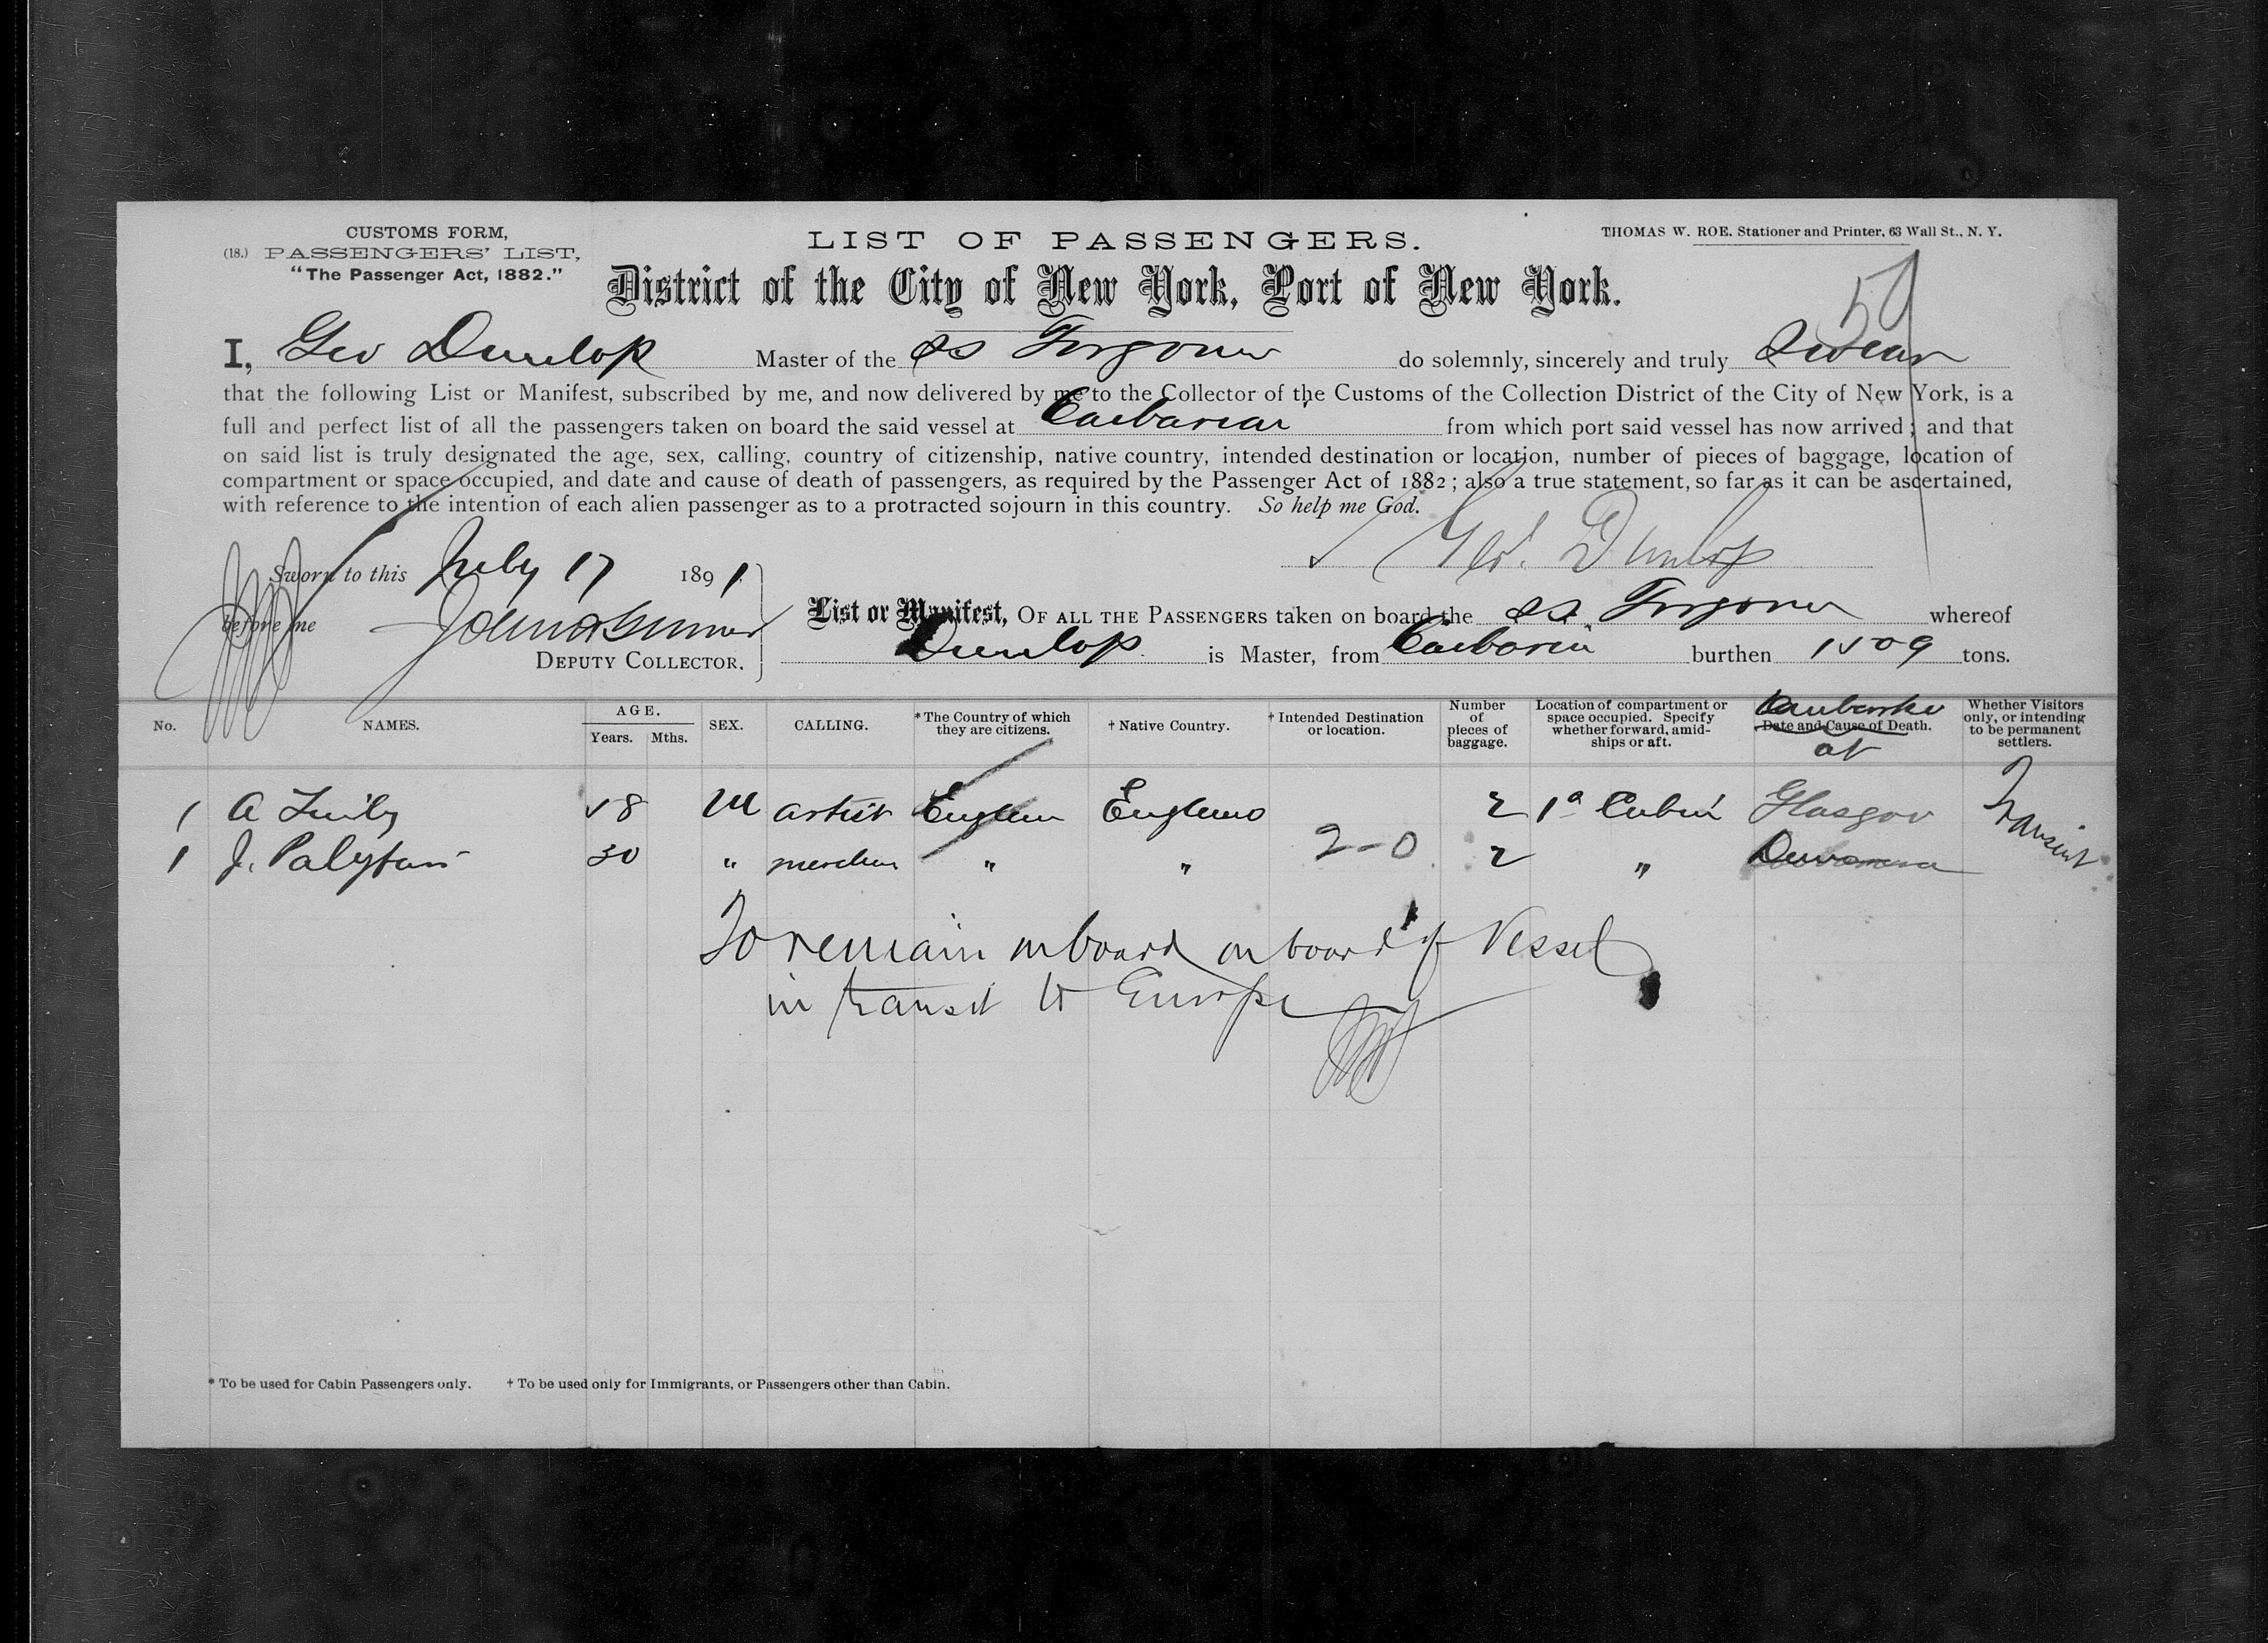 CUSTOMS FORM,
(18.) PASSENGERS' LIST,
"The Passenger Act, 1882."
LIST OF PASSENGERS.
THOMAS W. ROE, Stationer and Printer, 63 Wall St., N. Y.
District of the City of New York, Port of New York.
I, Geo Dunlop Master of the ss do solemnly, sincerely and truly Swear
that the following List or Manifest, subscribed by me, and now delivered by me to the Collector of the Customs of the Collection District of the City of New York, is a
full and perfect list of all the passengers taken on board the said vessel at from which port said vessel has now arrived; and that
on said list is truly designated the age, sex, calling, country of citizenship, native country, intended destination or location, number of pieces of baggage, location of
compartment or space occupied, and date and cause of death of passengers, as required by the Passenger Act of 1882; also a true statement, so far as it can be ascertained,
with reference to the intention of each alien passenger as to a protracted sojourn in this country. So help me God.
Geo. Dunlop
Sworn to this July 17 1891
before me
DEPUTY COLLECTOR.
List or Manifest, OF ALL THE PASSENGERS taken on board the ss whereof
Dunlop is Master, from burthen 1509 tons.
No. NAMES. AGE. Years. Mths. SEX. CALLING. * The Country of which they are citizens. † Native Country. † Intended Destination or location. Number of pieces of baggage. Location of compartment or space occupied. Specify whether forward, amidships or aft. Date and Cause of Death. at Whether Visitors only, or intending to be permanent settlers.
1 A M artist 2 1a Cabin Glasgow Transient
1 J. 30 " " " 2-0 2 "
To remain on board on board of Vessel
in transit to Europe
* To be used for Cabin Passengers only. † To be used only for Immigrants, or Passengers other than Cabin.